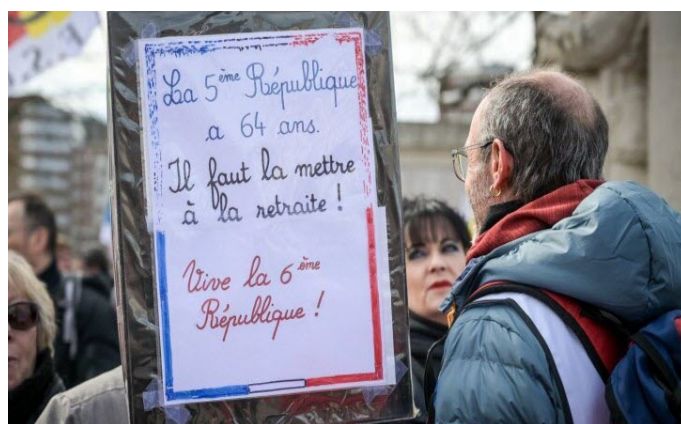 La 5ème République
a 64 ans.
Il faut la mettre
à la retraite !
Vive la 6ème
République !